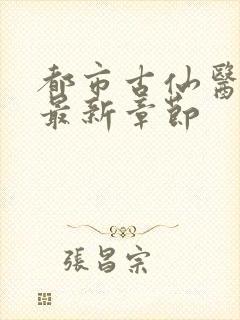 都市古仙醫
最新章節
張昌宗